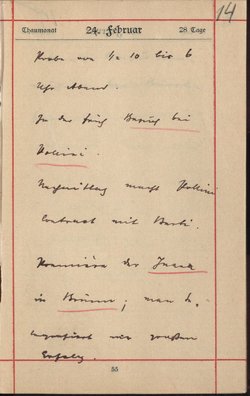 14
Thaumonat 24. Februar 28 Tage
Probe von ½ 10 bis 6
Uhr Abend.
In der früh Besuch bei
Pollini.
Nachmittag macht Pollini
Contract mit Berti.
Première der Jueca
in Brünn; man te-
legrafiert von großen
Erfolg.
55